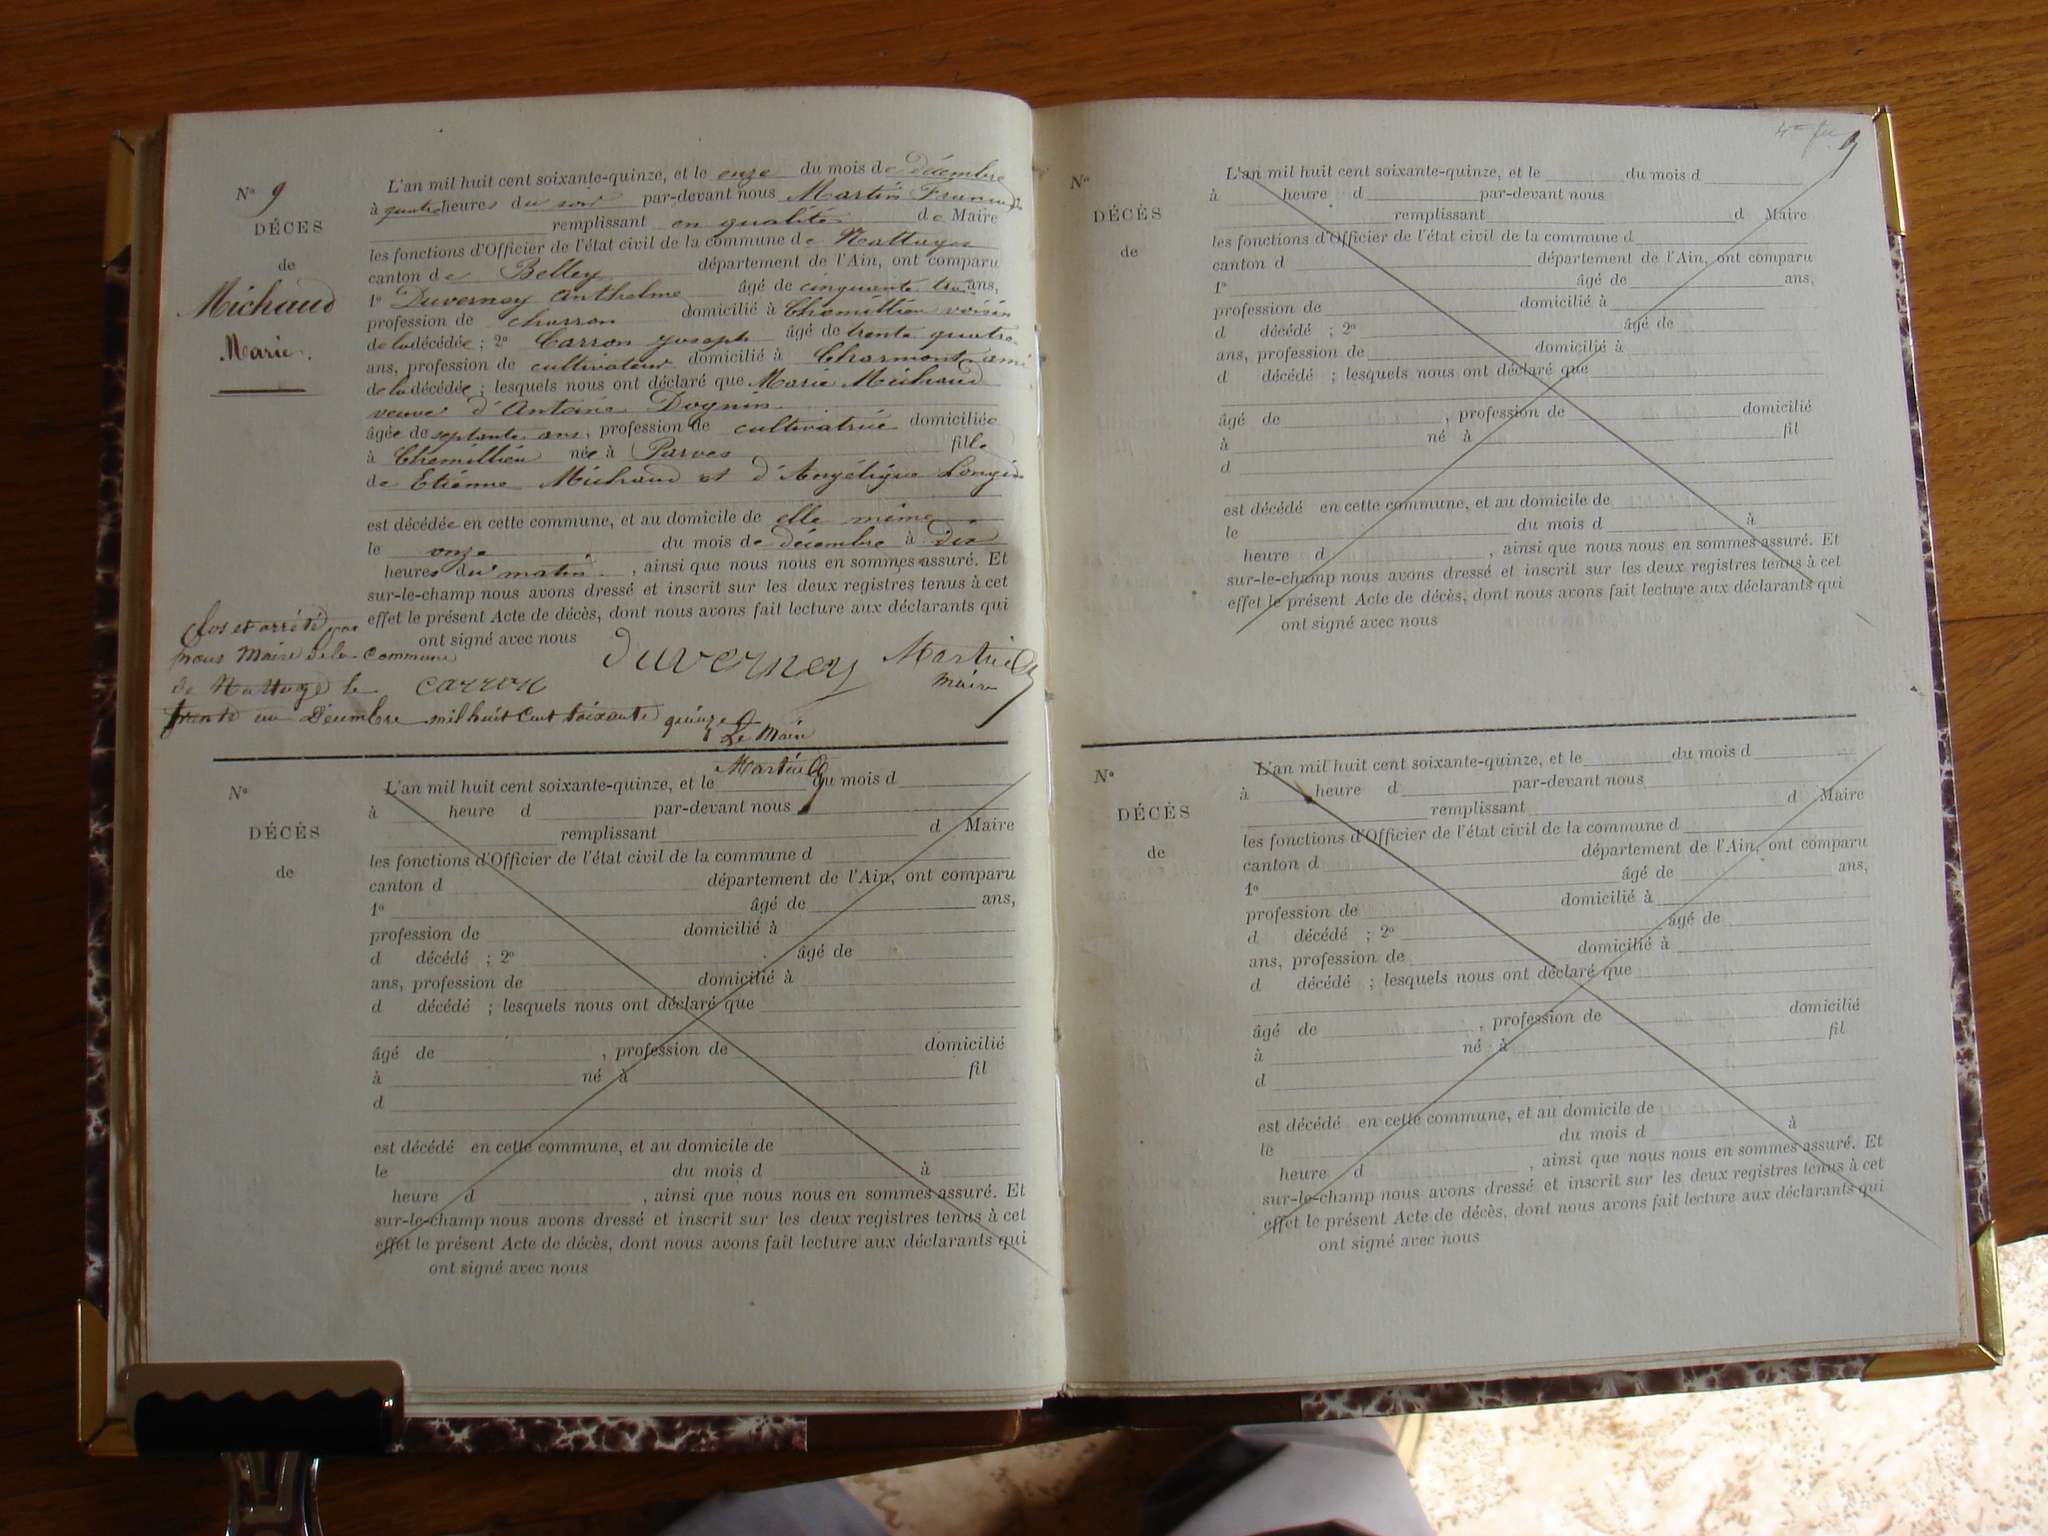 N° 9
DÉCÈS
de
Michaud
Marie.
L'an mil huit cent soixante-quinze, et le onze du mois de décembre
à quatre heures du soir par-devant nous Martin François
remplissant en qualité de Maire
les fonctions d'Officier de l'état civil de la commune de Nattages
canton de Belley département de l'Ain, ont comparu
1° Duverney Anthelme âgé de cinquante trois ans,
profession de charron domicilié à Chemillieu voisin
de la décédée ; 2° Carron Joseph âgé de trente quatre
ans, profession de cultivateur domicilié à Charmont ami
de la décédée ; lesquels nous ont déclaré que Marie Michaud
veuve d'Antoine Dognin
âgée de septante ans, profession de cultivatrice domiciliée
à Chemillieu née à Parves fille
de Etienne Michaud et d'Angélique Longin
est décédée en cette commune, et au domicile de elle même
le onze du mois de décembre à dix
heures du matin , ainsi que nous nous en sommes assuré. Et
sur-le-champ nous avons dressé et inscrit sur les deux registres tenus à cet
effet le présent Acte de décès, dont nous avons fait lecture aux déclarants qui
ont signé avec nous
Duverney Martin
maire
carron
Clos et arrêté par
nous Maire de la commune
de Nattages le
trente un Décembre mil huit cent soixante quinze
Le Maire
Martin
N°
DÉCÈS
de
L'an mil huit cent soixante-quinze, et le du mois d
à heure d par-devant nous
remplissant d Maire
les fonctions d'Officier de l'état civil de la commune d
canton d département de l'Ain, ont comparu
1° âgé de ans,
profession de domicilié à
d décédé ; 2° âgé de
ans, profession de domicilié à
d décédé ; lesquels nous ont déclaré que
âgé de , profession de domicilié
à né à fil
d
est décédé en cette commune, et au domicile de
le du mois d à
heure d , ainsi que nous nous en sommes assuré. Et
sur-le-champ nous avons dressé et inscrit sur les deux registres tenus à cet
effet le présent Acte de décès, dont nous avons fait lecture aux déclarants qui
ont signé avec nous
N°
DÉCÈS
de
L'an mil huit cent soixante-quinze, et le du mois d
à heure d par-devant nous
remplissant d Maire
les fonctions d'Officier de l'état civil de la commune d
canton d département de l'Ain, ont comparu
1° âgé de ans,
profession de domicilié à
d décédé ; 2° âgé de
ans, profession de domicilié à
d décédé ; lesquels nous ont déclaré que
âgé de , profession de domicilié
à né à fil
d
est décédé en cette commune, et au domicile de
le du mois d à
heure d , ainsi que nous nous en sommes assuré. Et
sur-le-champ nous avons dressé et inscrit sur les deux registres tenus à cet
effet le présent Acte de décès, dont nous avons fait lecture aux déclarants qui
ont signé avec nous
N°
DÉCÈS
de
L'an mil huit cent soixante-quinze, et le du mois d
à heure d par-devant nous
remplissant d Maire
les fonctions d'Officier de l'état civil de la commune d
canton d département de l'Ain, ont comparu
1° âgé de ans,
profession de domicilié à
d décédé ; 2° âgé de
ans, profession de domicilié à
d décédé ; lesquels nous ont déclaré que
âgé de , profession de domicilié
à né à fil
d
est décédé en cette commune, et au domicile de
le du mois d à
heure d , ainsi que nous nous en sommes assuré. Et
sur-le-champ nous avons dressé et inscrit sur les deux registres tenus à cet
effet le présent Acte de décès, dont nous avons fait lecture aux déclarants qui
ont signé avec nous